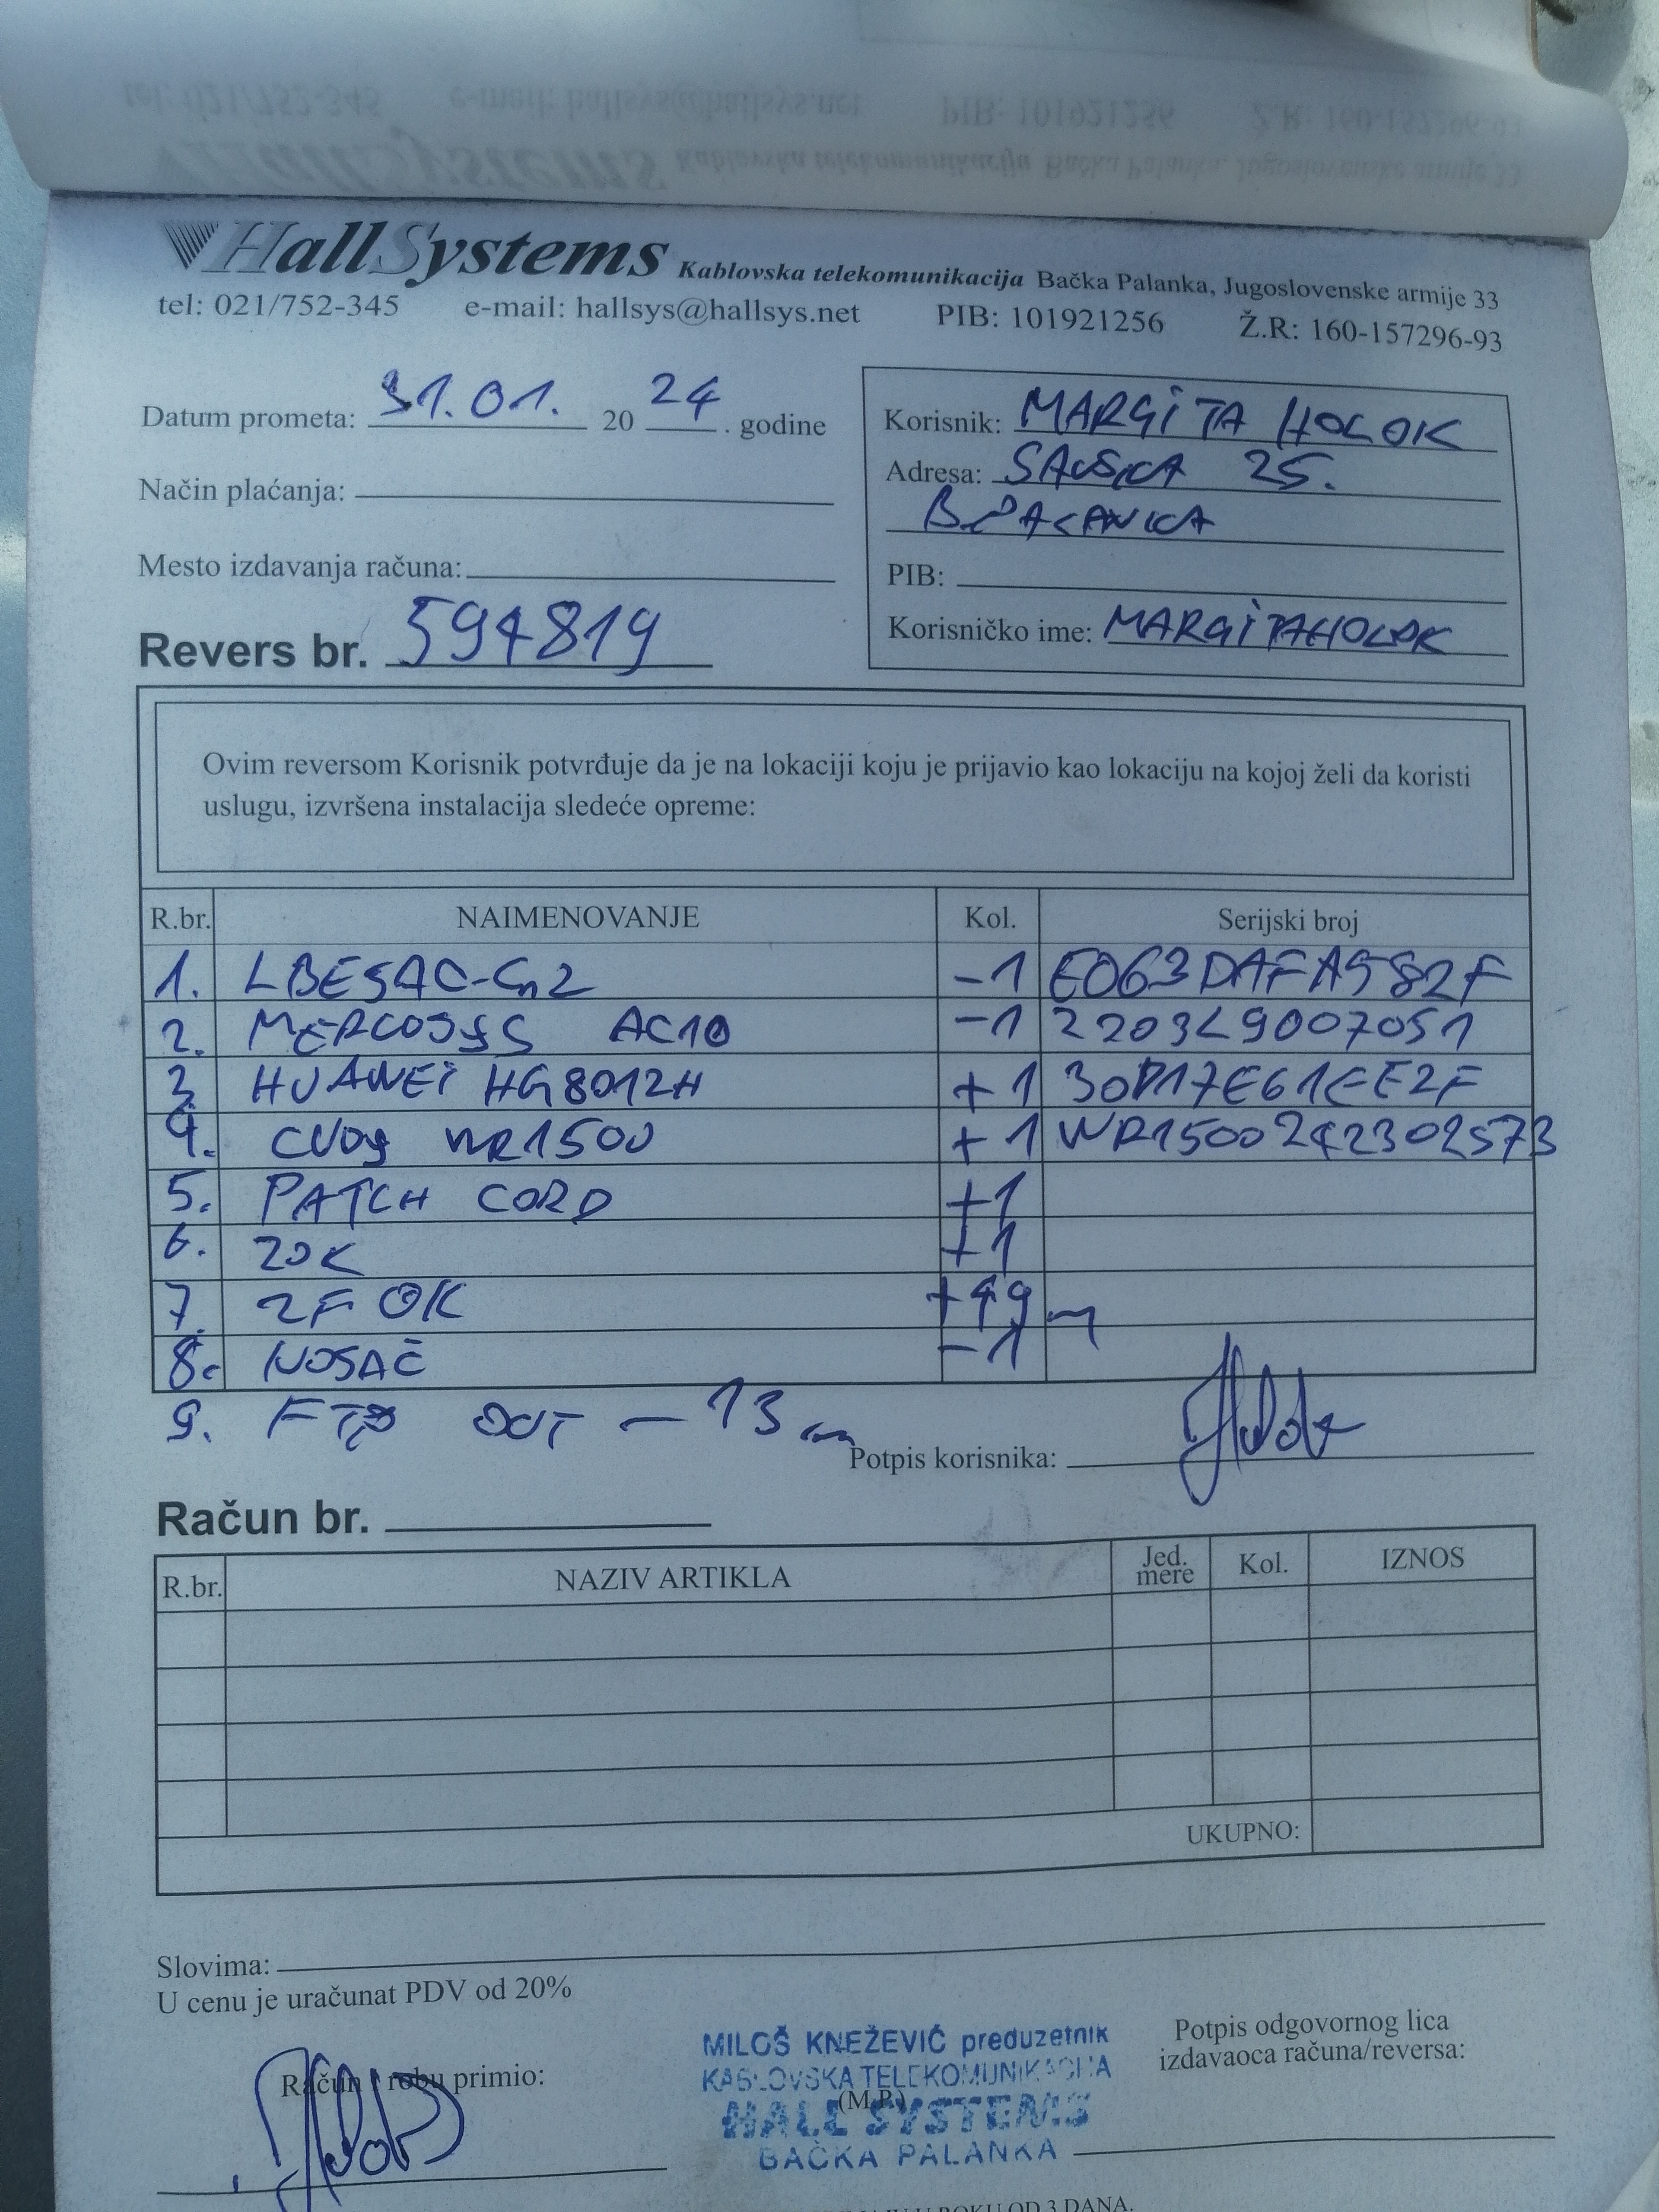 HallSystems Kablovska telekomunikacija Bačka Palanka, Jugoslovenske armije 33
tel: 021/752-345 e-mail: hallsys@hallsys.net PIB: 101921256 Ž.R: 160-157296-93
Datum prometa: 31.01. 2024. godine
Način plaćanja:
Mesto izdavanja računa:
Revers br. 594819
Korisnik: MARGITA HOLOK
Adresa: SAVSKA 25.
B. PALANKA
PIB:
Korisničko ime: MARGITAHOLOK
Ovim reversom Korisnik potvrđuje da je na lokaciji koju je prijavio kao lokaciju na kojoj želi da koristi
uslugu, izvršena instalacija sledeće opreme:
R.br. NAIMENOVANJE Kol. Serijski broj
1. LBE5AC-Gn2 -1 E063DAFA982F
2. MERCUSYS AC10 -1 2203L9007051
3. HUAWEI HG8012H +1 30D17E61EE2F
4. CUDY WR1500 +1 WR1500242302573
5. PATCH CORD +1
6. ZOK +1
7. 2F OK +49m
8. NOSAČ -1
9. FTP OUT -13m
Potpis korisnika:
Račun br.
R.br. NAZIV ARTIKLA Jed. mere Kol. IZNOS
UKUPNO:
Slovima:
U cenu je uračunat PDV od 20%
Račun i robu primio:
MILOŠ KNEŽEVIĆ preduzetnik
KABLOVSKA TELEKOMUNIKACIJA
(M.P.)
HALL SYSTEMS
BAČKA PALANKA
Potpis odgovornog lica
izdavaoca računa/reversa:
U ROKU OD 3 DANA.